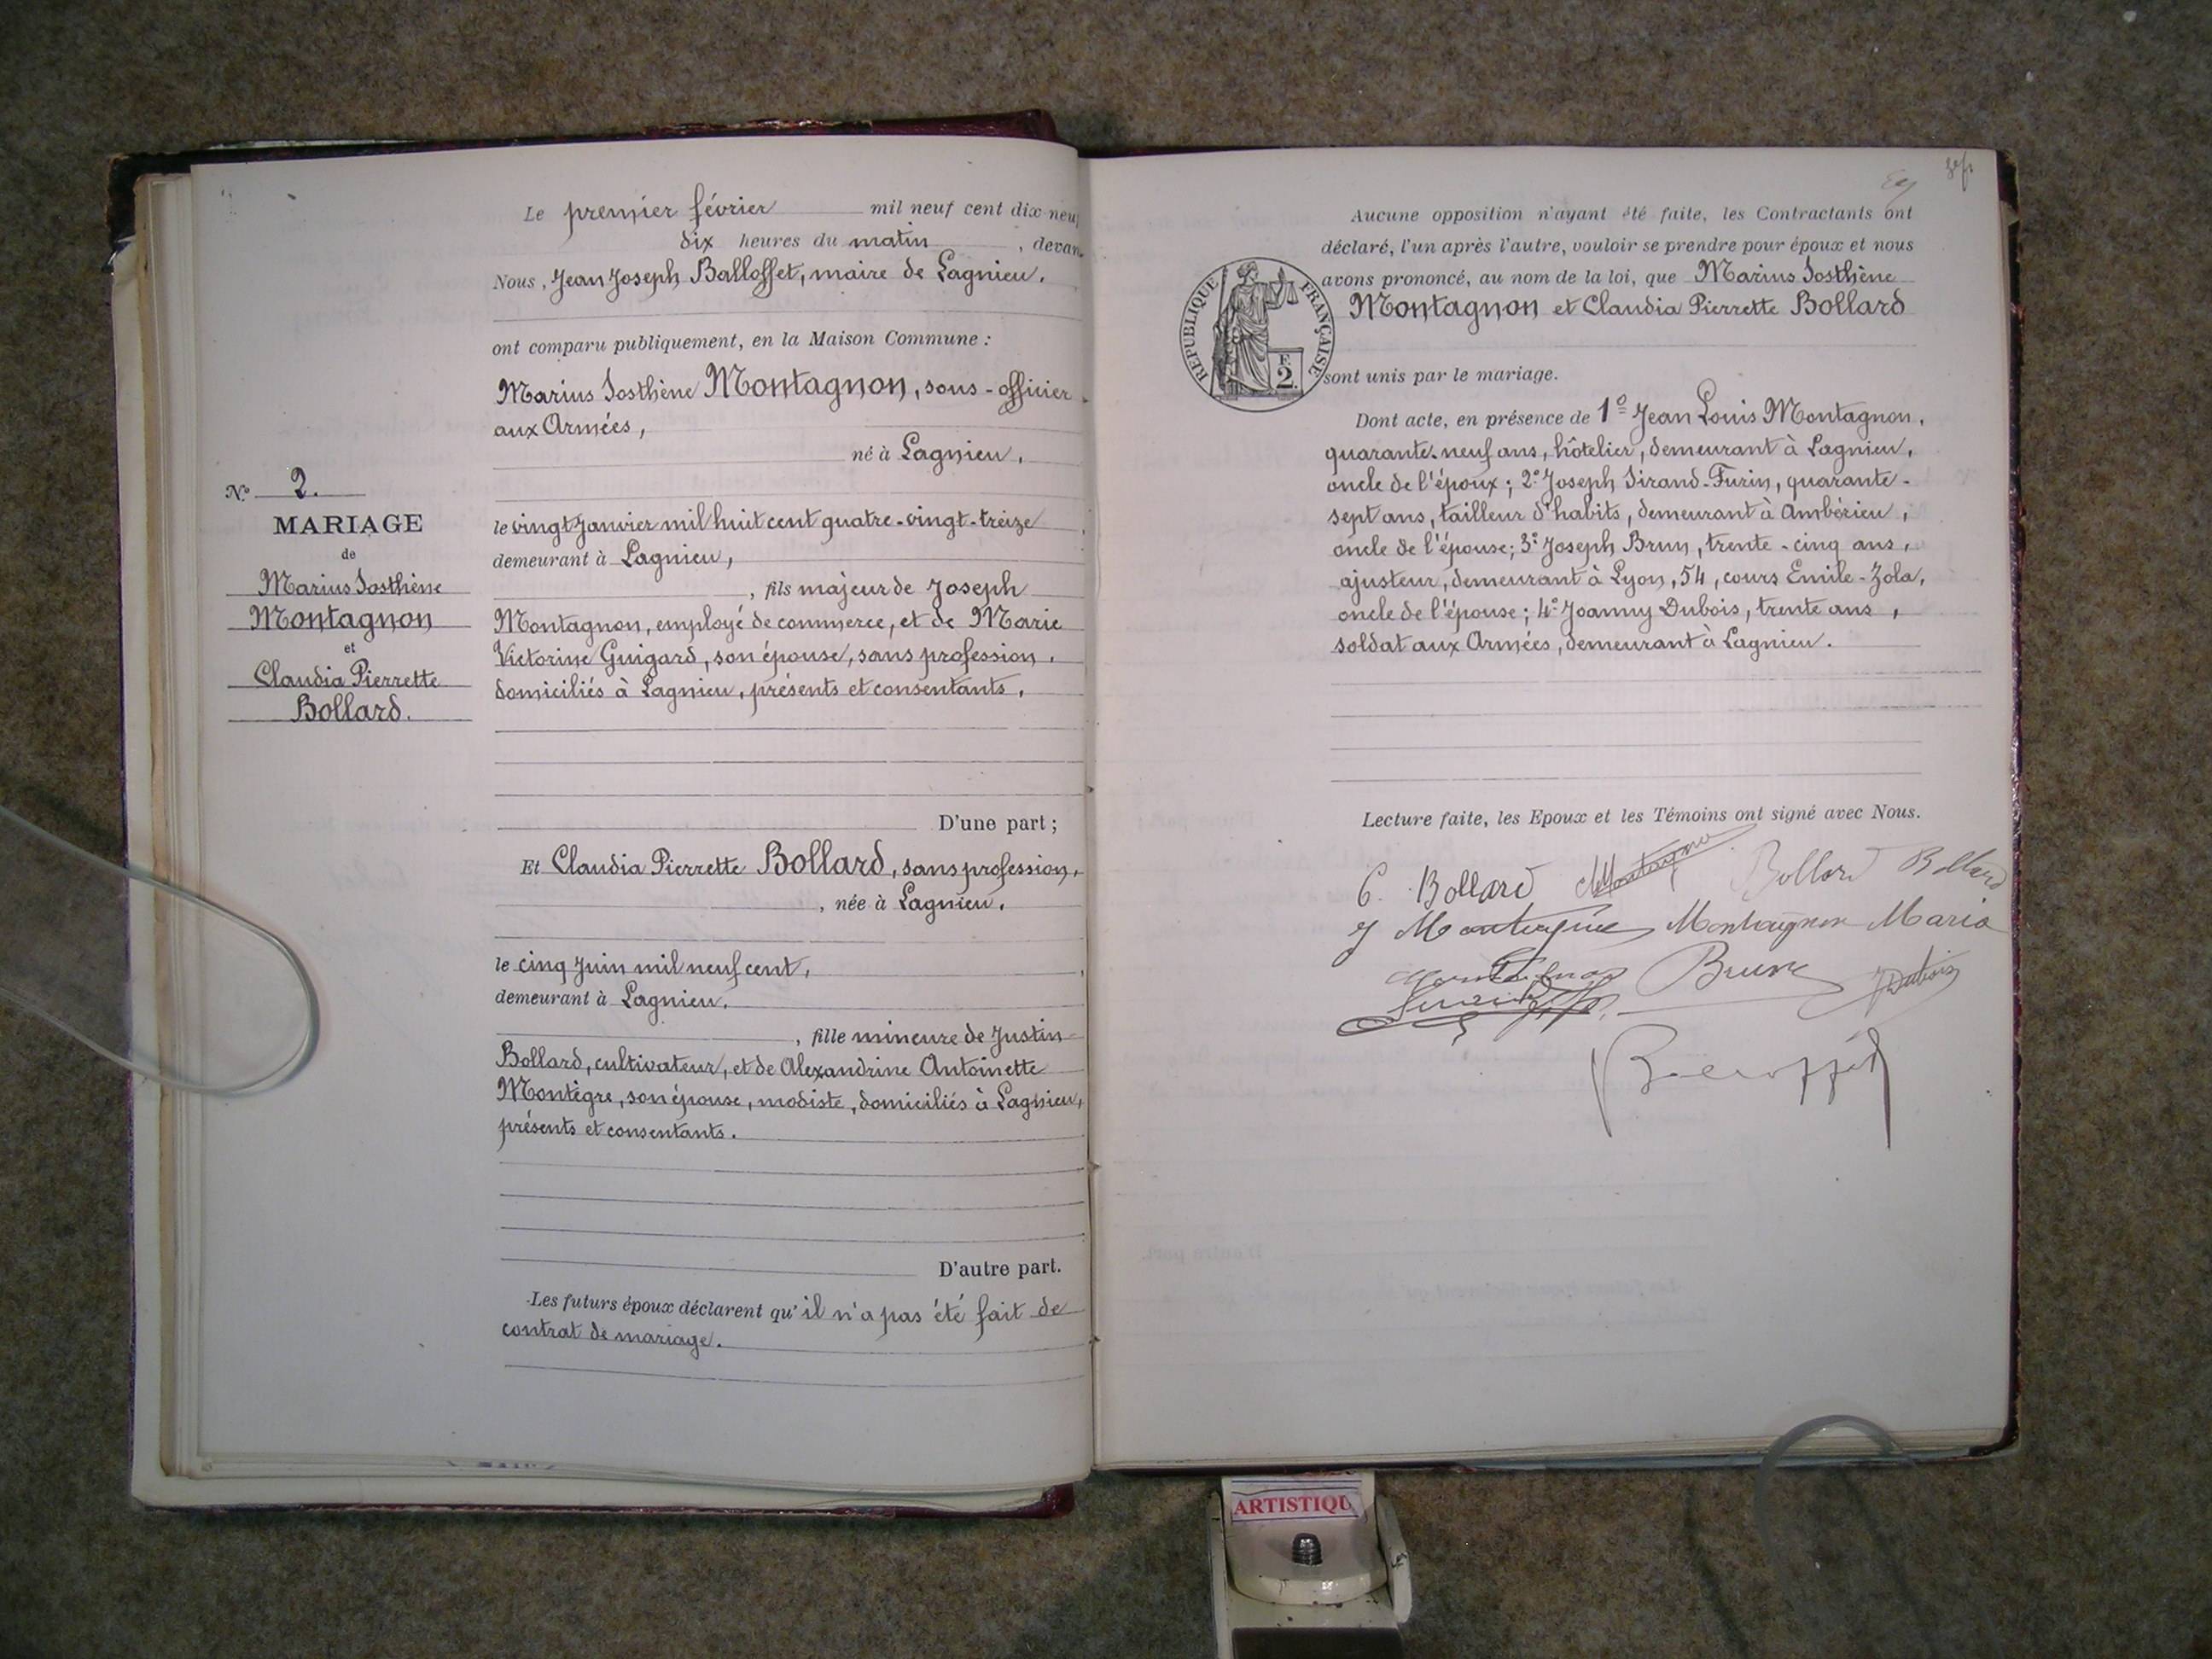 Le premier février mil neuf cent dix-neuf
dix heures du matin, devan
Nous, Jean Joseph Balloffet, maire de Lagnieu,
ont comparu publiquement, en la Maison Commune :
Marius Sosthène Montagnon, sous-officier
aux Armées,
né à Lagnieu,
le vingt Janvier mil huit cent quatre-vingt-treize
demeurant à Lagnieu,
, fils majeur de Joseph
Montagnon, employé de commerce, et de Marie
Victorine Guigard, son épouse, sans profession,
domiciliés à Lagnieu, présents et consentants,
D'une part ;
Et Claudia Pierrette Bollard, sans profession,
, née à Lagnieu,
le cinq Juin mil neuf cent,
demeurant à Lagnieu,
, fille mineure de Justin
Bollard, cultivateur, et de Alexandrine Antoinette
Montègre, son épouse, modiste, domiciliés à Lagnieu,
présents et consentants.
D'autre part.
Les futurs époux déclarent qu'il n'a pas été fait de
contrat de mariage.
N° 2.
MARIAGE
de
Marius Sosthène
Montagnon
et
Claudia Pierrette
Bollard.
Aucune opposition n'ayant été faite, les Contractants ont
déclaré, l'un après l'autre, vouloir se prendre pour époux et nous
avons prononcé, au nom de la loi, que Marius Sosthène
Montagnon et Claudia Pierrette Bollard
sont unis par le mariage.
RÉPUBLIQUE FRANÇAISE
F.
2
Dont acte, en présence de 1° Jean Louis Montagnon,
quarante-neuf ans, hôtelier, demeurant à Lagnieu,
oncle de l'époux ; 2° Joseph Sirand-Furin, quarante-
sept ans, tailleur d'habits, demeurant à Ambérieu,
oncle de l'épouse ; 3° Joseph Brun, trente-cinq ans,
ajusteur, demeurant à Lyon, 54, cours Emile-Zola,
oncle de l'épouse ; 4° Joanny Dubois, trente ans,
soldat aux Armées, demeurant à Lagnieu.
Lecture faite, les Epoux et les Témoins ont signé avec Nous.
C. Bollard Montagnon Bollard Bollard
Montagnon Maria
Brun J Dubois
Balloffet
ARTISTIQU